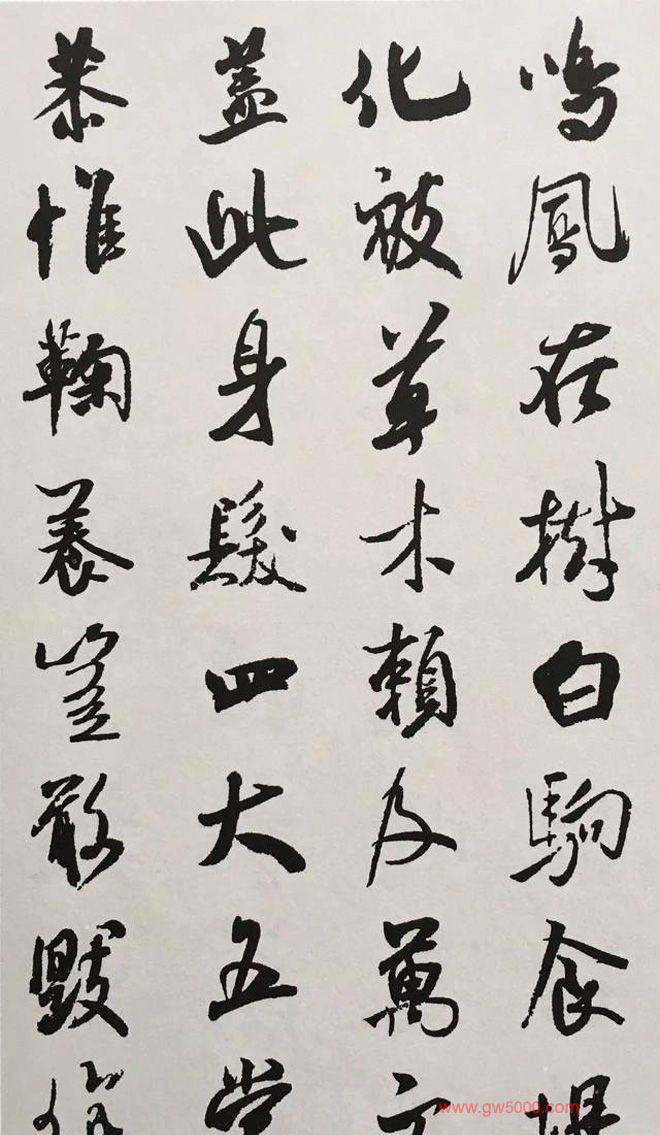 鳴鳳在樹白駒食場
化被草木賴及萬方
蓋此身髮四大五常
恭惟鞠養豈敢毀傷
www.gw5000.com